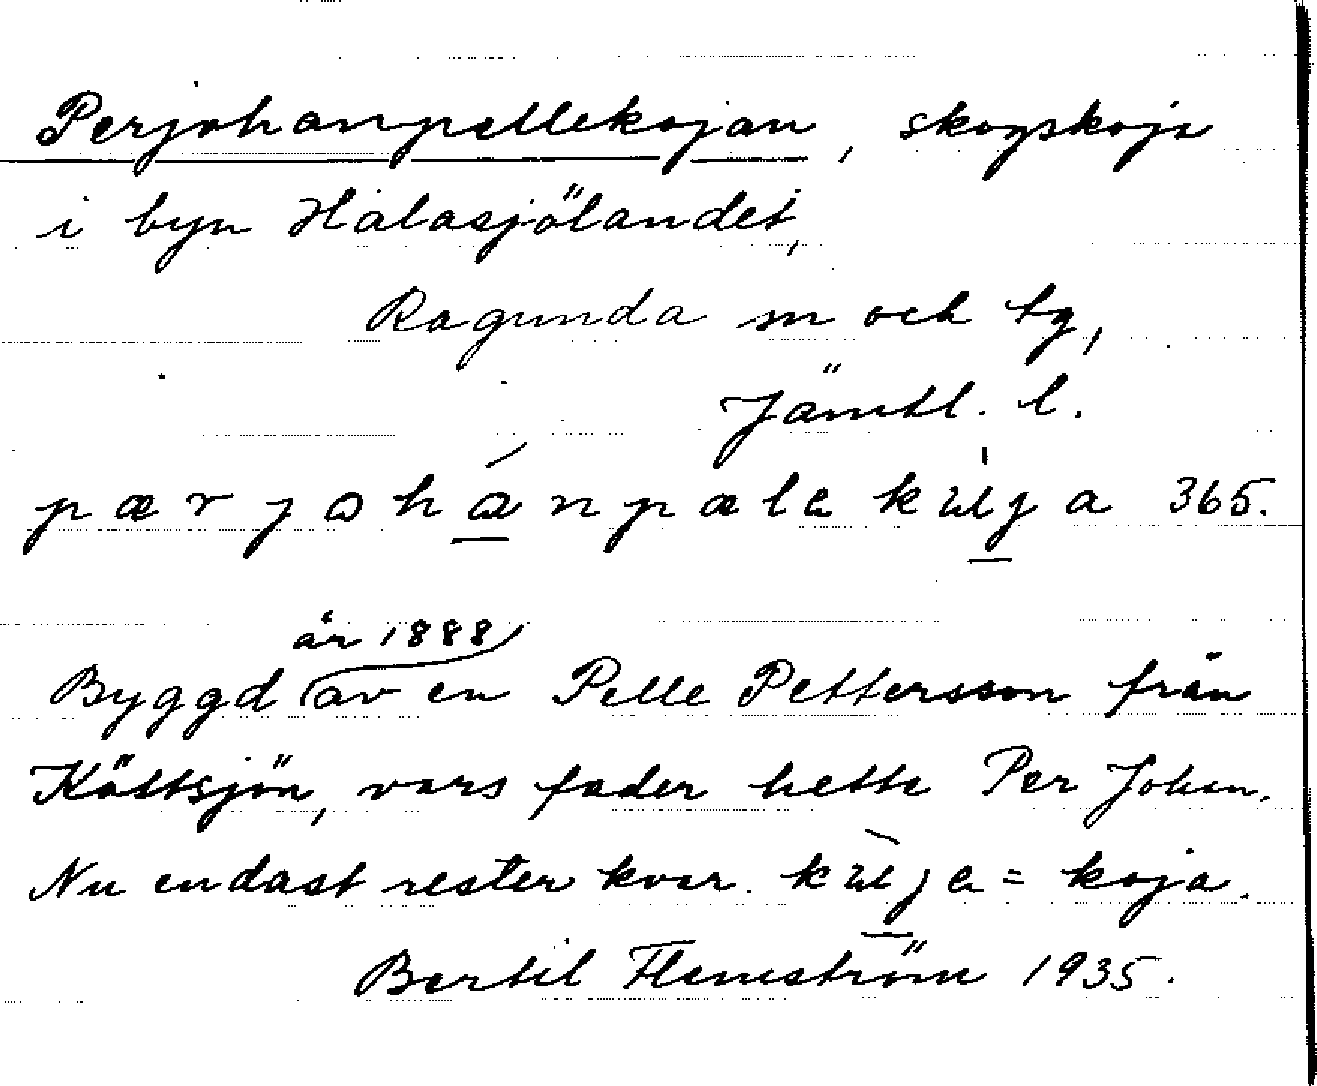 Perjohanpellekojan, skogskoja
i byn Halasjölandet,
Ragunda sn och tg,
Jämtl. l.
pærjohánpæle kuja 365.
år 1888
Byggd av en Pelle Pettersson från
Köttsjön, vars fader hette Per Johan.
Nu endast rester kvar. = koja.
Bertil Flemström 1935.